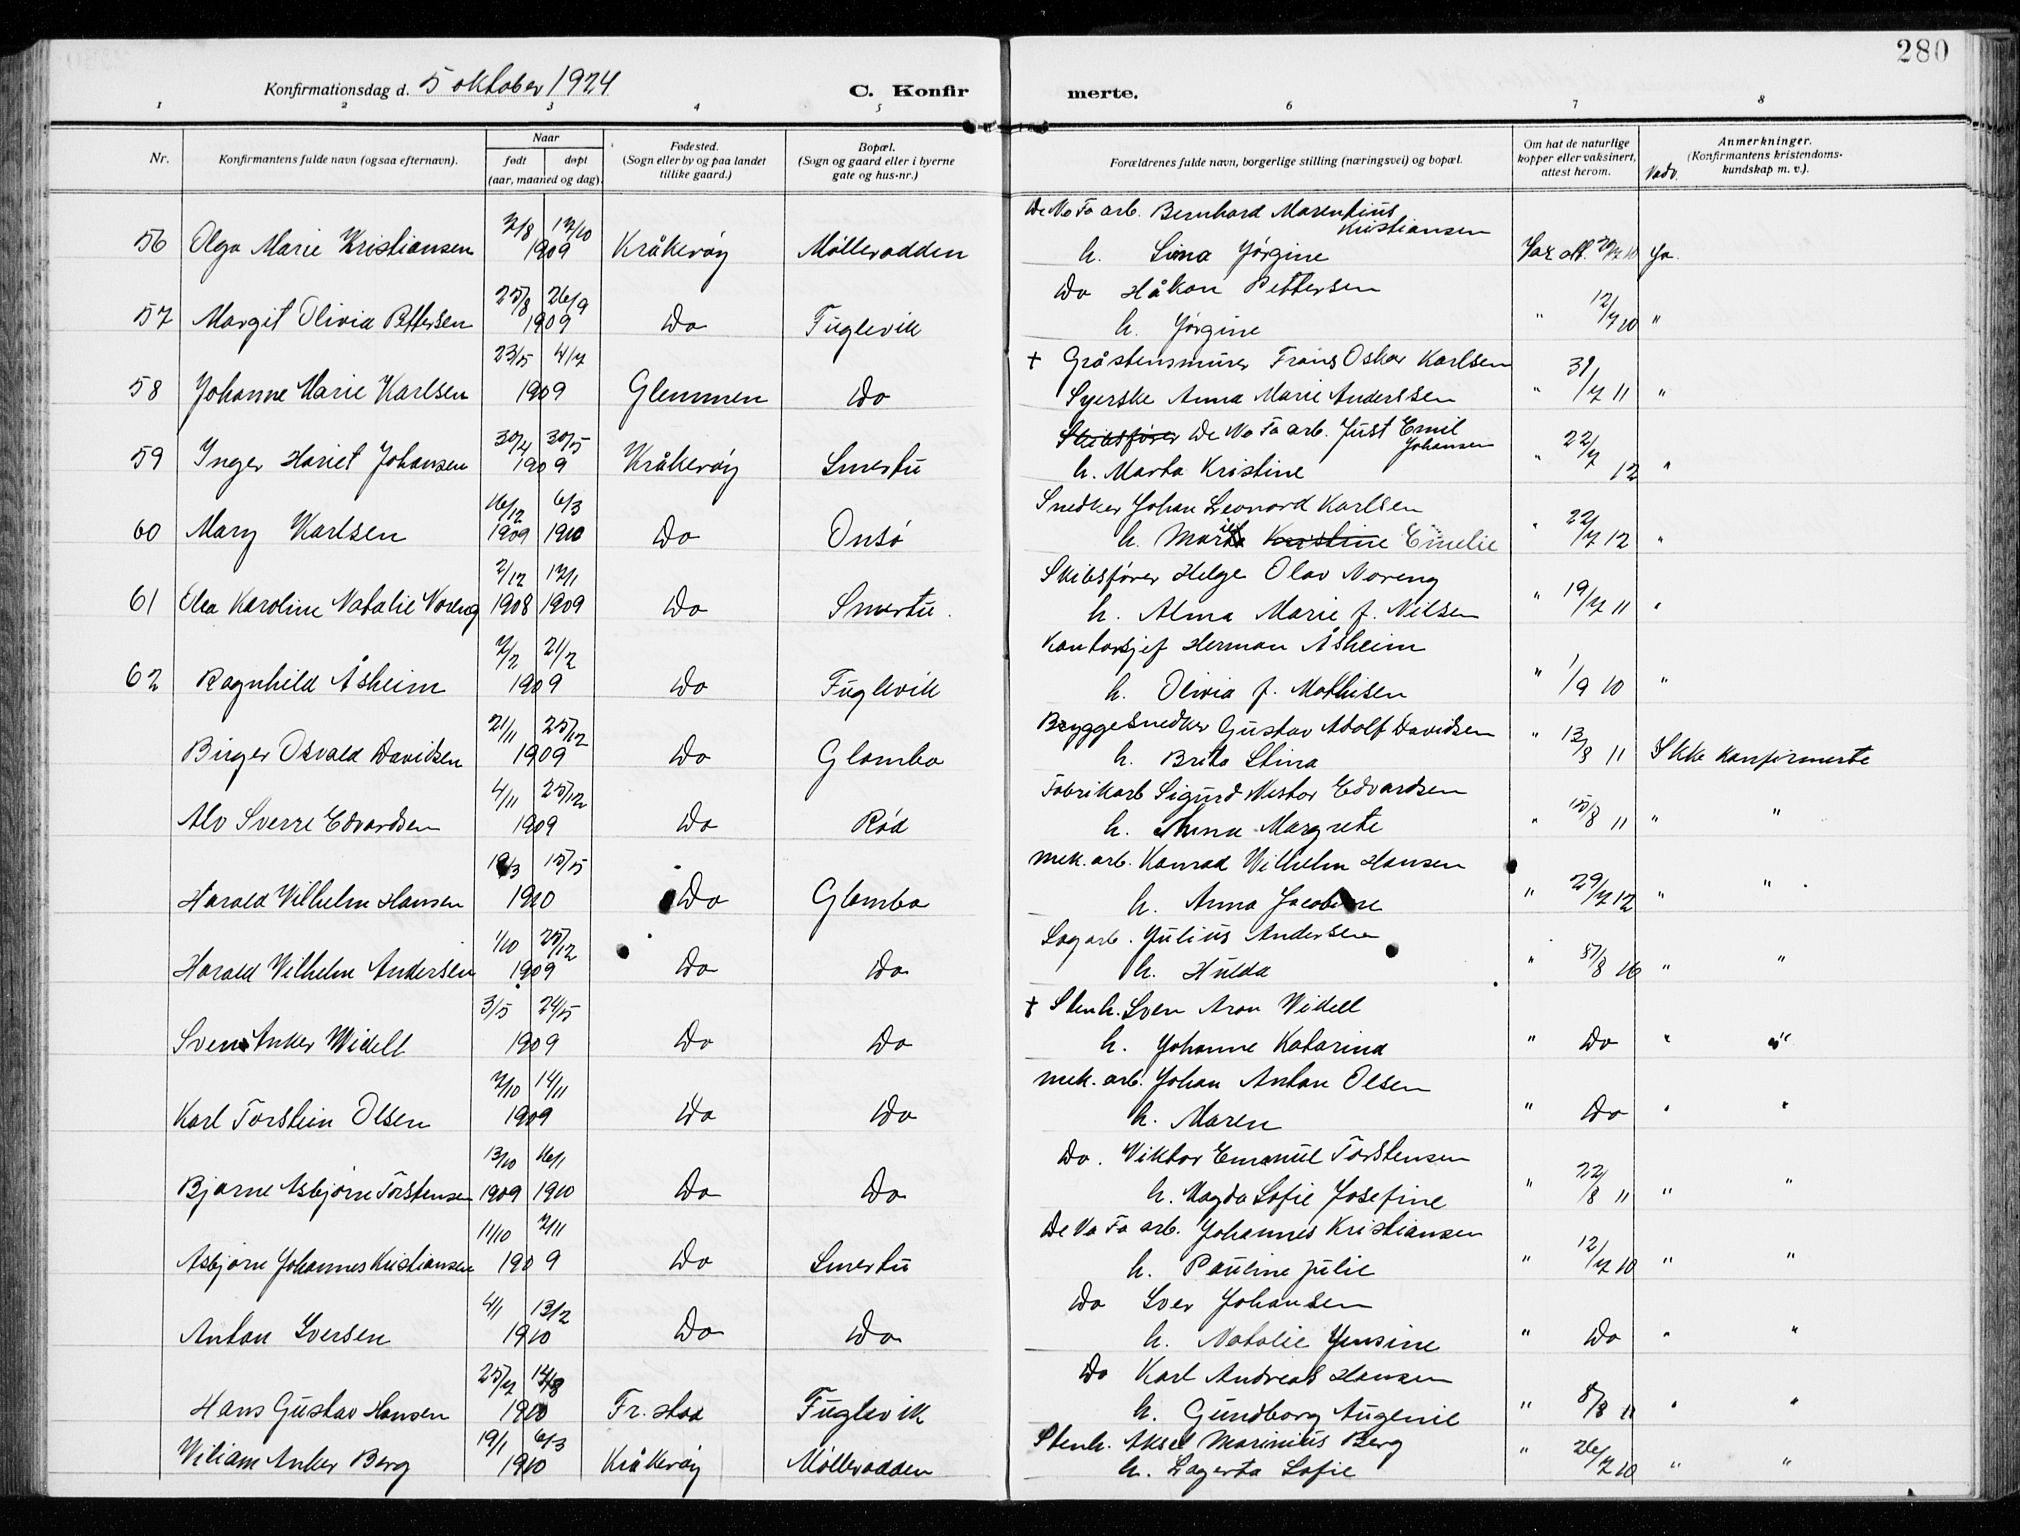 280
Konfirmationsdag d. 5 oktober 1924 C. Konfir merte.
1 2 3 4 5 6 7 8
Nr. Konfirmantens fulde navn (ogsaa efternavn). Naar født døpt (aar, maaned og dag). Fødested. (Sogn eller by og paa landet tillike gaard.) Bopæl. (Sogn og gaard eller i byerne gate og hus-nr.) Forældrenes fulde navn, borgerlige stilling (næringsvei) og bopæl. Om hat de naturlige kopper eller vaksinert, attest herom. Nadv. Anmerkninger. (Konfirmantens kristendomskundskap m. v.).
De No Fa arb. Bernhard Marentius Kristiansen
56 Olga Marie Kristiansen 7/8 17/10 1909 Kråkerøy Mølleradden h. Lina Jørgine Vax att. 10 Ja.
Do Håkon Pettersen
57 Margit Olivia Pettersen 25/8 26/9 1909 Do Fuglevik h. Jørgine " 12/7 10 "
+ Gråstensmurer Frans Oskar Karlsen
58 Johanne Marie Karlsen 23/5 4/7 1909 Glemmen Do Syerske Anna Marie Anderssen " 31/7 11 "
Skibsfører De No Fa arb. Just Emil Johansen
59 Inger Hariet Johansen 30/4 30/5 1909 Kråkerøy Smertu h. Marta Kristine " 22/7 12 "
Snedker Johan Leonard Karlsen
60 Mary Karlsen 16/12 1909 6/3 1910 Do Onsø h. Marie Kristine Emelie " 22/7 12 "
Skibsfører Helge Olav Noreng
61 Elsa Karoline Natalie Noreng 2/12 1908 17/1 1909 Do Smertu. h. Alma Marie f. Nilsen " 19/7 11 "
Kontorsjef Herman Åsheim
62 Ragnhild Åsheim 7/2 21/2 1909 Do Fuglevik h. Olivia f. Mathisen " 1/9 10 "
Bryggesnedker Gustav Adolf Davidsen
Birger Osvald Davidsen 21/11 25/12 1909 Do Glombo h. Brita Stina " 13/8 11 Ikke konfirmerte
Fabrikarb Sigurd Nestor Edvardsen
Alv Sverre Edvardsen 4/11 25/12 1909 Do Rød h. Anna Margrete " 15/8 11 " "
mek. arb. Konrad Wilhelm Hansen
Harald Vilhelm Hansen 15/5 1910 Do Glombo h. Anna Jacobine " 29/7 12 " "
Sagarb. Julius Andersen
Harald Wilhelm Andersen 1/10 25/12 1909 Do Do h. Hulda " 31/8 16 " "
+ Stenh. Sven Aron Widell
Sven Anker Widell 3/5 24/5 1909 Do Do h. Johanne Katarina " Do " "
mek. arb. Johan Anton Olsen
Karl Torstein Olsen 7/10 14/11 1909 Do Do h. Maren " Do " "
Do. Viktor Emanuel Torstensen
Bjarne Asbjørn Torstensen 13/10 1909 16/1 1910 Do Do h. Magda Sofie Josefine " 22/8 11 " "
De No Fa arb. Johannes Kristiansen
Asbjørn Johannes Kristiansen 11/10 7/11 1909 Do Smertu h. Pauline Julie " 12/7 10 " "
Do Iver Johansen
Anton Iversen 4/1 13/2 1910 Do Do h. Natalie Jensine " Do " "
Do Karl Andreas Hansen
Hans Gustav Hansen 25/7 1910 Fr. stad Fuglevik h. Gundborg Augenie " 8/8 11 " "
Stenh. Aksel Marinius Berg
Viliam Anker Berg 19/1 6/3 1910 Kråkerøy Mølleradden h. Lagerta Sofie " 26/7 10 " "